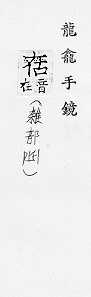 龍龕手鏡
音
在
(雜部